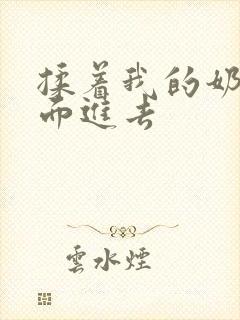 揉着我的奶
而進去
雲水煙